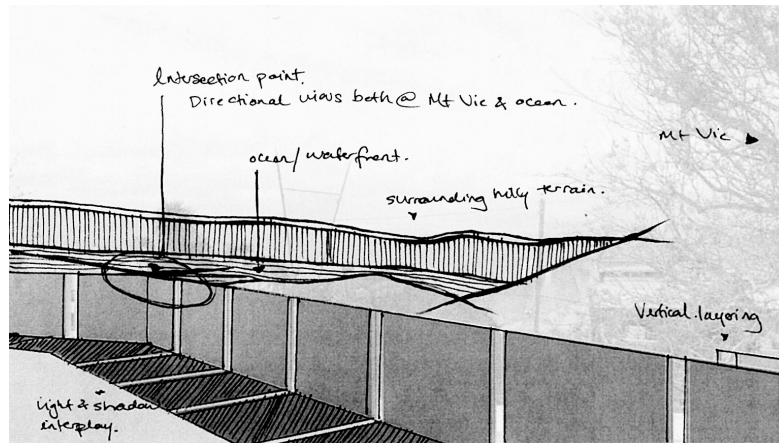 Intersection point.
Directional views both @ Mt Vic & ocean.
Mt Vic
ocean/waterfront.
surrounding hilly terrain.
Vertical layering
light & shadow
interplay.